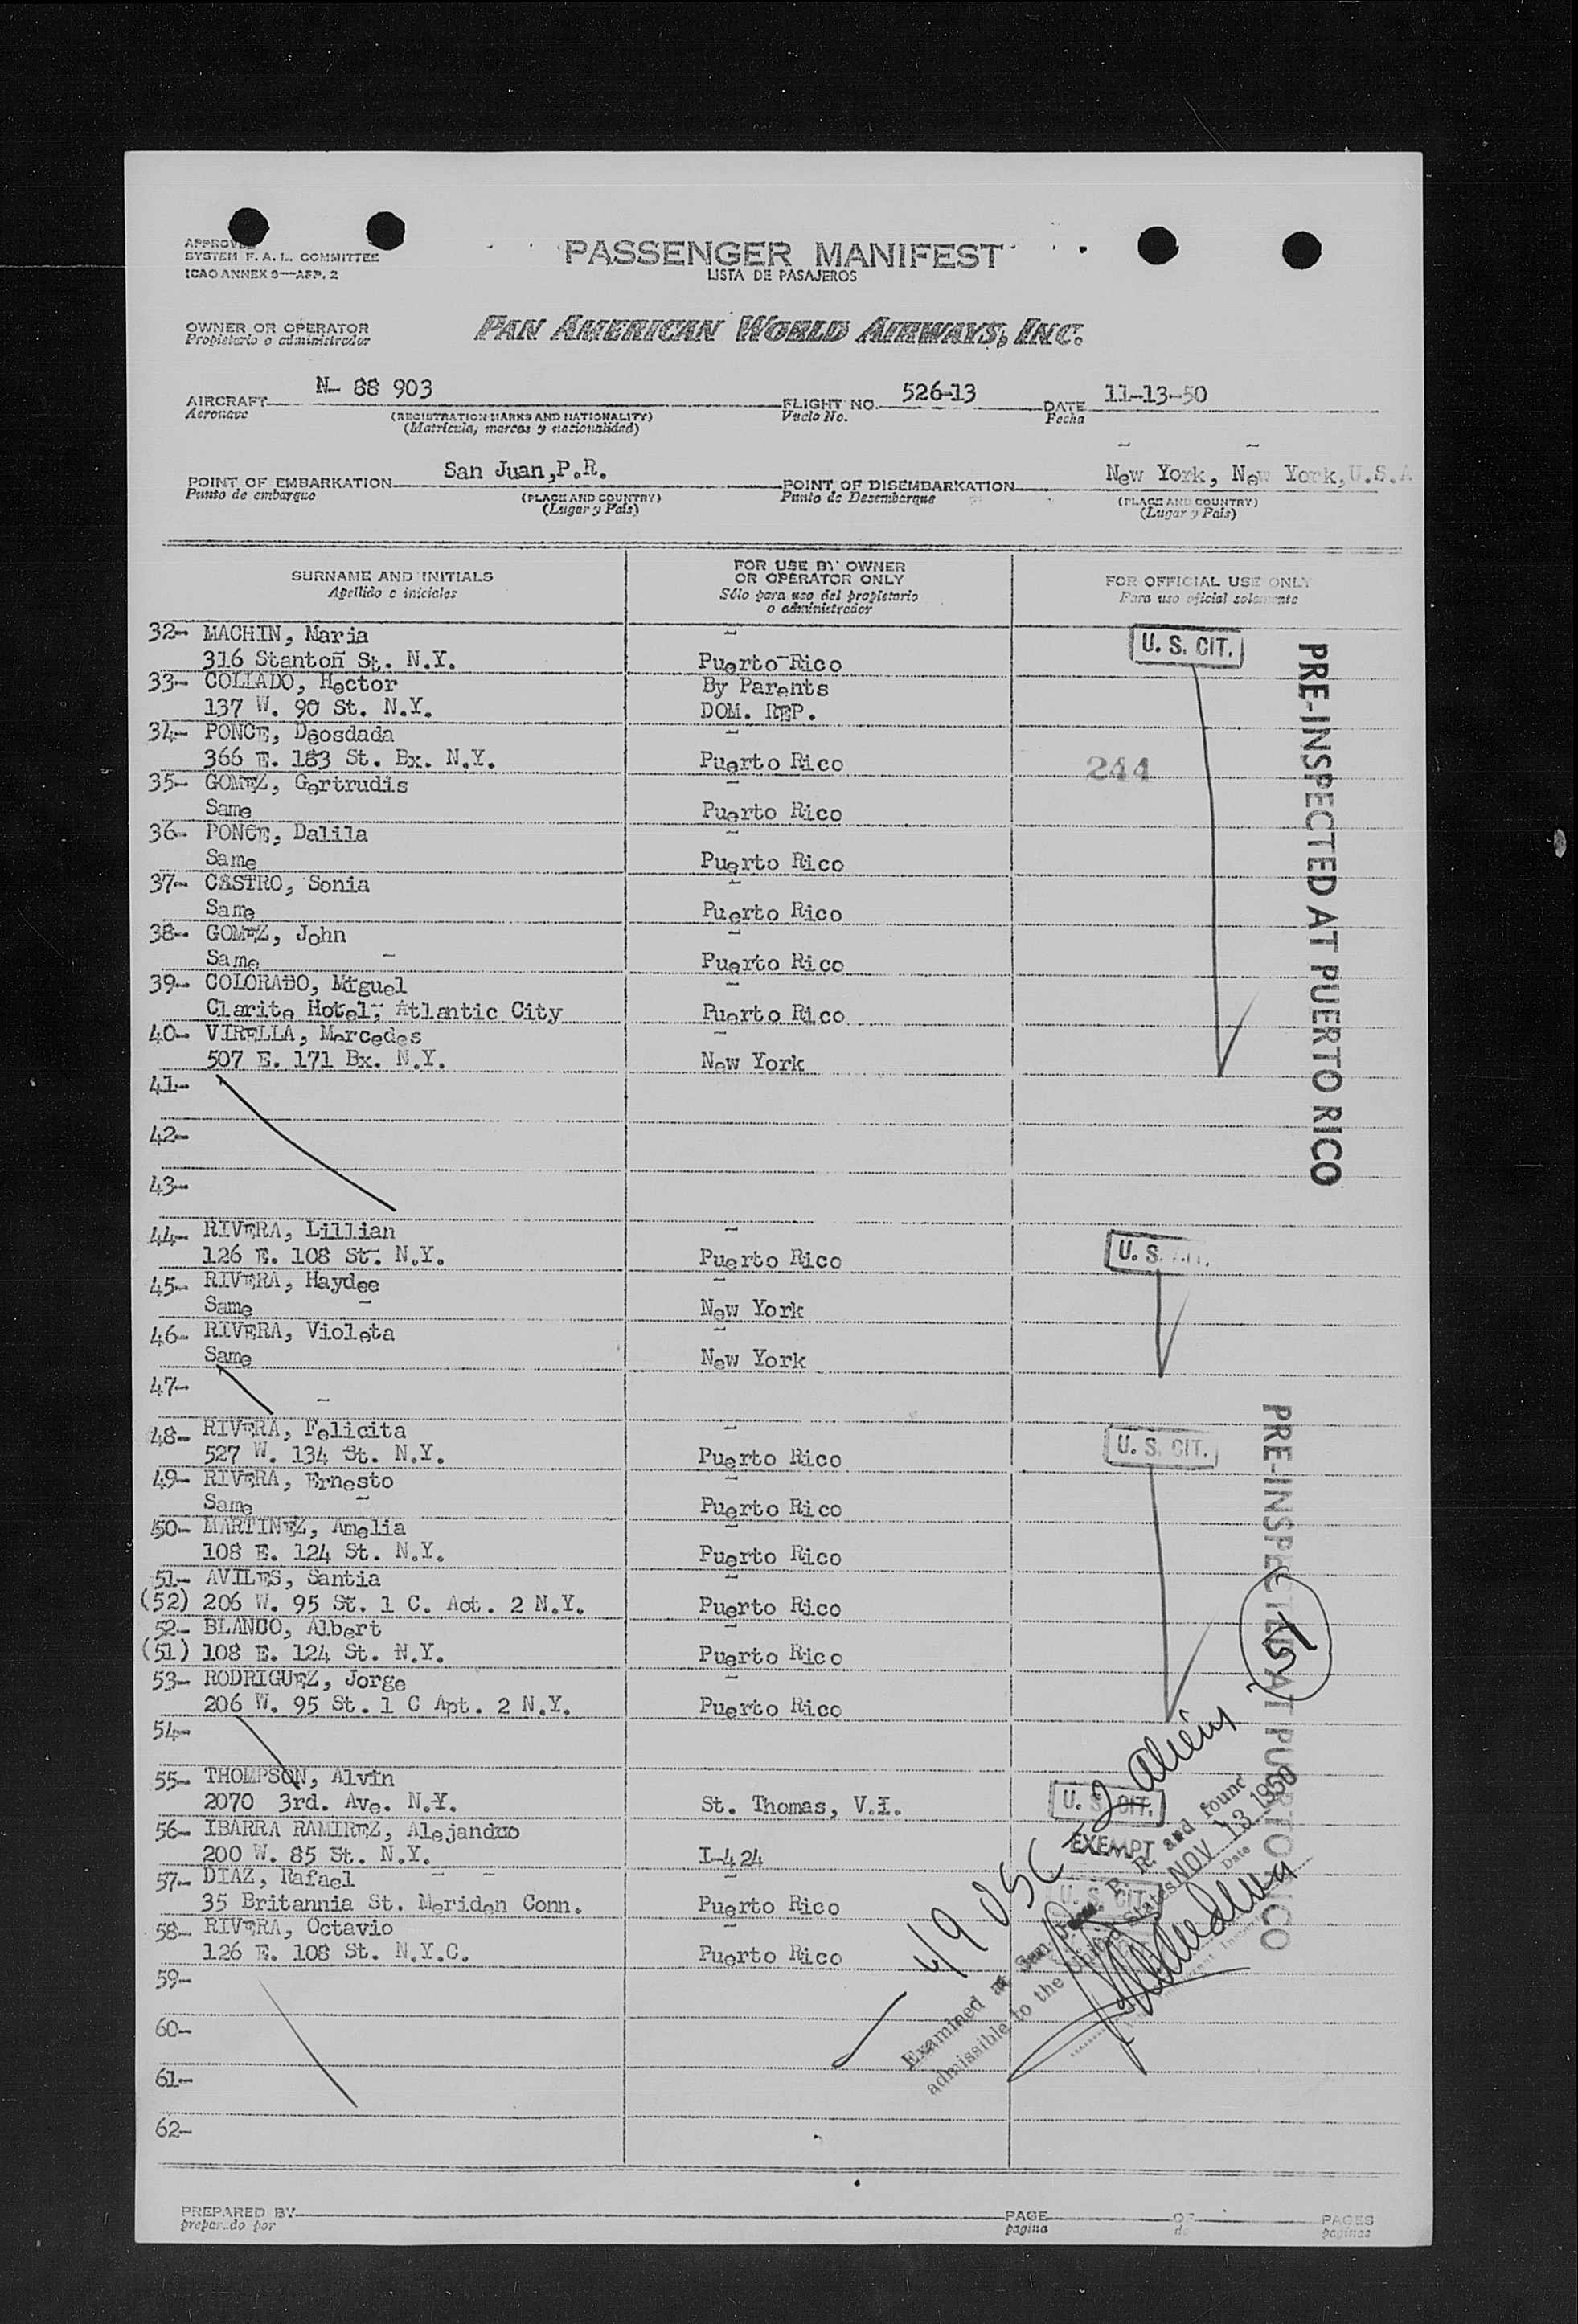 APPROVED
SYSTEM F. A. L. COMMITTEE
ICAO ANNEX 9—APP. 2
PASSENGER MANIFEST
LISTA DE PASAJEROS
OWNER OR OPERATOR
Propietario o administrador
PAN AMERICAN WORLD AIRWAYS, INC.
AIRCRAFT N- 88 903 FLIGHT NO. 526-13 DATE 11-13-50
Aeronave (REGISTRATION MARKS AND NATIONALITY) Vuelo No. Fecha
(Matrícula, marcas y nacionalidad)
POINT OF EMBARKATION San Juan,P.R. POINT OF DISEMBARKATION New York, New York,U.S.A
Punto de embarque (PLACE AND COUNTRY) Punto de Desembarque (PLACE AND COUNTRY)
(Lugar y País) (Lugar y País)
SURNAME AND INITIALS FOR USE BY OWNER OR OPERATOR ONLY FOR OFFICIAL USE ONLY
Apellido e iniciales Sólo para uso del propietario o administrador Para uso oficial solamente
32- MACHIN, Maria U. S. CIT.
316 Stanton St. N.Y. Puerto Rico
33- COLLADO, Hector By Parents
137 W. 90 St. N.Y. DOM. REP.
34- PONCE, Deosdada
366 E. 183 St. Bx. N.Y. Puerto Rico 244
35- GOMEZ, Gertrudis
Same Puerto Rico
36- PONCE, Dalila
Same Puerto Rico
37- CASTRO, Sonia
Same Puerto Rico
38- GOMEZ, John
Same Puerto Rico
39- COLORADO, Miguel
Clarite Hotel, Atlantic City Puerto Rico
40- VIRELLA, Mercedes
507 E. 171 Bx. N.Y. New York
PRE-INSPECTED AT PUERTO RICO
41-
42-
43-
44- RIVERA, Lillian U. S. CIT.
126 E. 108 St. N.Y. Puerto Rico
45- RIVERA, Haydee
Same New York
46- RIVERA, Violeta
Same New York
47-
48- RIVERA, Felicita U. S. CIT.
527 W. 134 St. N.Y. Puerto Rico
49- RIVERA, Ernesto
Same Puerto Rico
50- MARTINEZ, Amelia
108 E. 124 St. N.Y. Puerto Rico
51- AVILES, Santia
(52) 206 W. 95 St. 1 C. Act. 2 N.Y. Puerto Rico
52- BLANCO, Albert
(51) 108 E. 124 St. N.Y. Puerto Rico
53- RODRIGUEZ, Jorge
206 W. 95 St. 1 C Apt. 2 N.Y. Puerto Rico
PRE-INSPECTED AT PUERTO RICO
54-
55- THOMPSON, Alvin
2070 3rd. Ave. N.Y. St. Thomas, V.I. U. S. CIT.
56- IBARRA RAMIREZ, Alejandro EXEMPT
200 W. 85 St. N.Y. I-424
57- DIAZ, Rafael U. S. CIT.
35 Britannia St. Meriden Conn. Puerto Rico
58- RIVERA, Octavio
126 E. 108 St. N.Y.C. Puerto Rico
49 USC - 2 aliens 51
Examined at San Juan, P. R. and found
admissible to the United States NOV 13 1950
Date
59-
60-
61-
62-
PREPARED BY PAGE OF PAGES
preparado por pagina de paginas